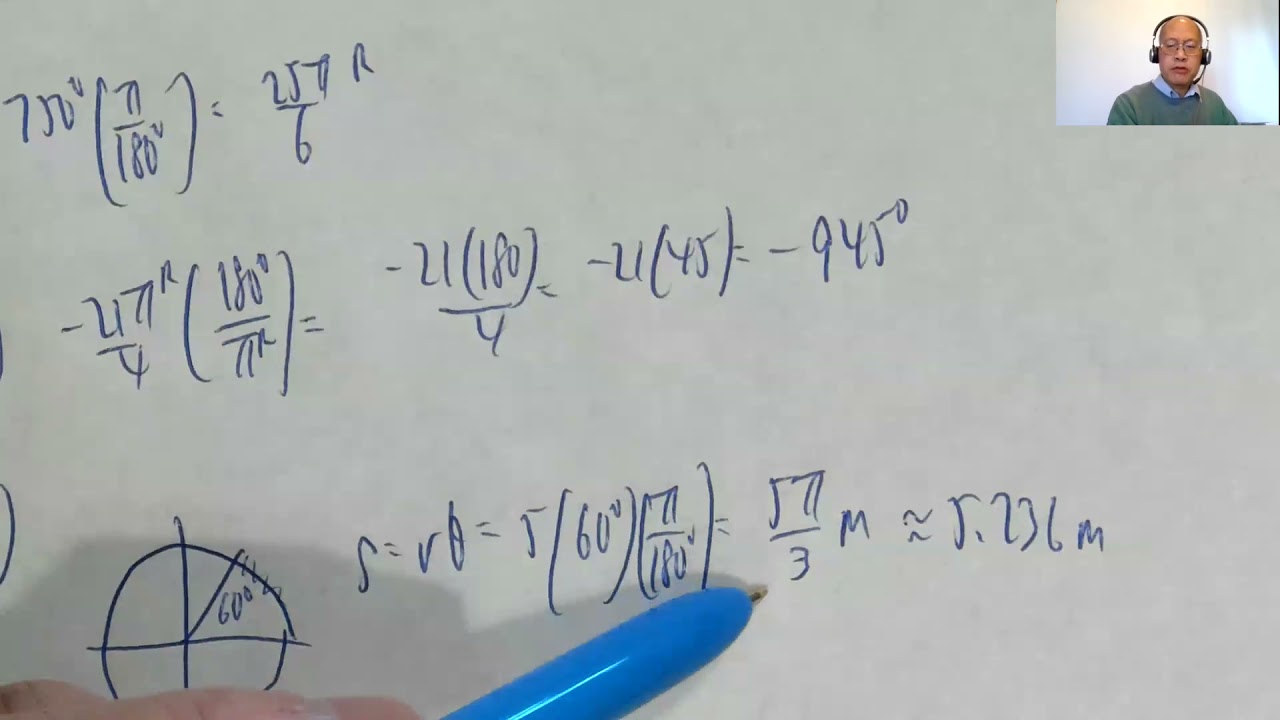 750° (π/180°) = 25π/6 ᴿ
-21πᴿ/4 (180°/πᴿ) = -21(180)/4 = -21(45) = -945°
60°
s = rθ = 5(60°)(π/180°) = 5π/3 m ≈ 5.236 m